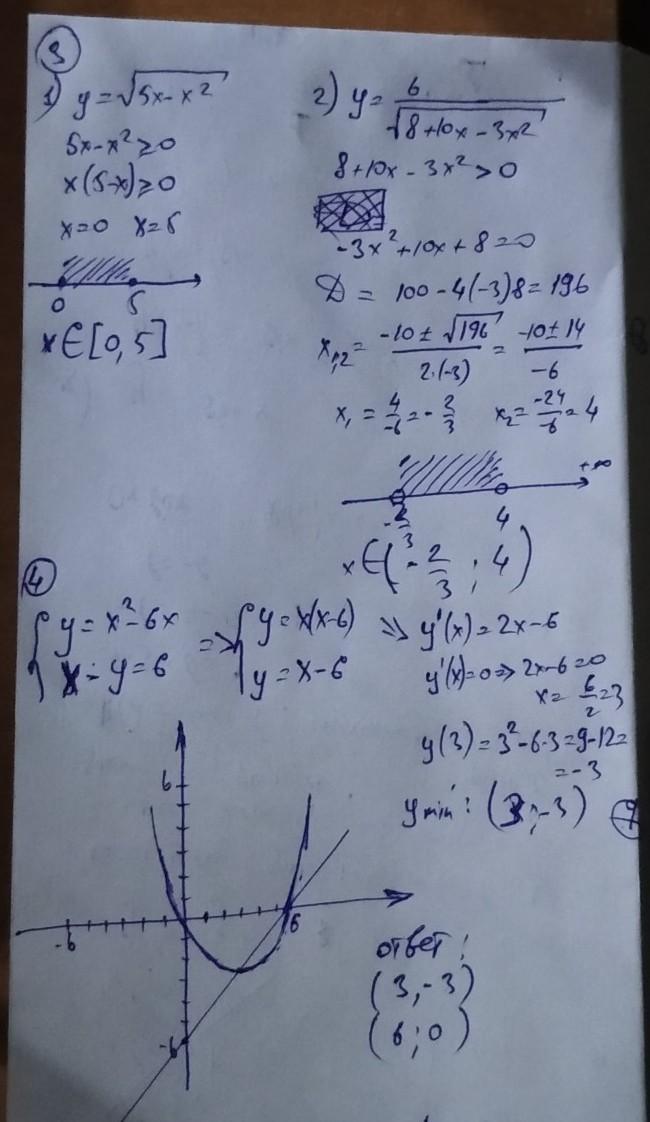 3
1) y = √(5x - x²)
5x - x² ≥ 0
x(5-x) ≥ 0
x=0 x=5
0 5
x ∈ [0, 5]
2) y = 6/√(8+10x-3x²)
8+10x - 3x² > 0
-3x² + 10x + 8 = 0
D = 100 - 4(-3)8 = 196
x₁,₂ = (-10 ± √196)/(2·(-3)) = (-10 ± 14)/(-6)
x₁ = 4/-6 = -2/3 x₂ = -24/-6 = 4
-2/3 4 +∞
x ∈ (-2/3 ; 4)
4
{ y = x² - 6x => { y = x(x-6) => y'(x) = 2x - 6
x - y = 6 y = x - 6 y'(x) = 0 => 2x-6=0
x = 6/2 = 3
y(3) = 3² - 6·3 = 9 - 12 =
= -3
y min : (3 ; -3)
6
-6 6
-6
ответ:
(3, -3)
(6 ; 0)